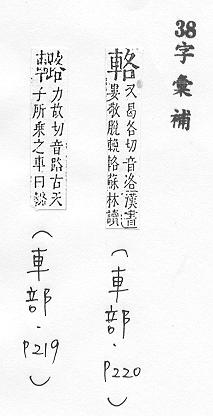 38字彙補
輅
又曷各切音洛漢書
婁敬脫輓輅蘇林讀
（車部．P220）
力故切音路古天
子所乘之車曰
（車部．P219）